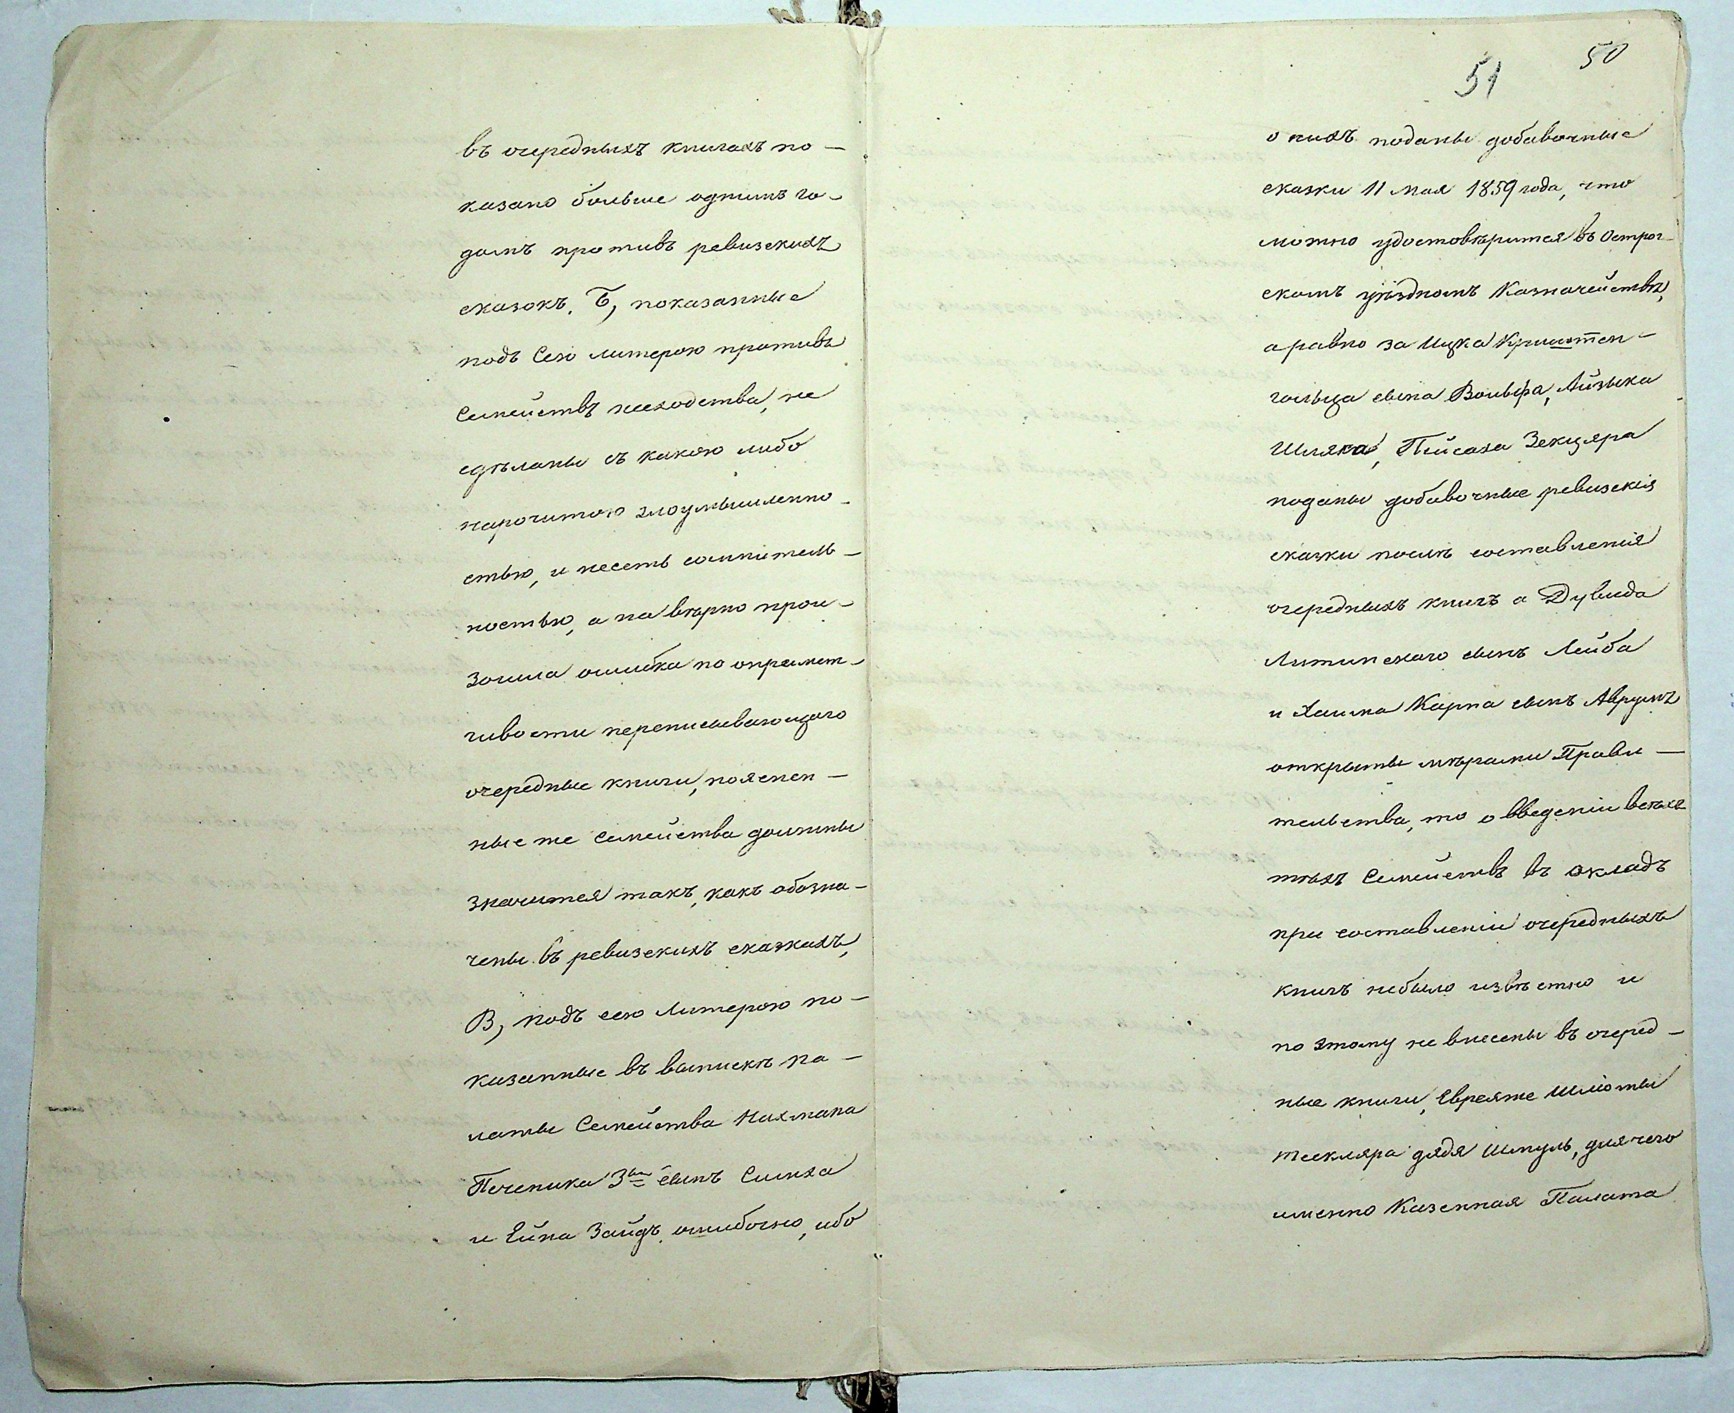 въ очередныхъ книгахъ по-
казано больше однимъ го-
домъ противъ ревизскихъ
сказокъ. Б, показанные
подъ Сею литерою противъ
Семействъ несходства, не
сдѣланы съ какою либо
нарочитою злоумышленно-
стью, и несеть сомнитель-
ностью, а на вѣрно прои-
зошла ошибка по опромет-
чивости переписывающаго
очередные книги, пояснен-
ные же Семейства должны
значится такъ, какъ обозна-
чены въ ревизскихъ сказкахъ,
В, подъ сею Литерою по-
казанные въ выпискѣ па-
латы Семейства Нахмана
Печеника 3й сынъ Симха
и Ейна Зайдъ ошибочно, ибо
51 50
о нихъ поданы добавочные
сказки 11 мая 1859 года, что
можно удостовѣрится въ Острог-
скомъ уѣздномъ Казначействѣ,
а равно за Ицка Криштен-
гольца сына Вольфа, Айзыка
Шляка, Пейсаха Зекцера
поданы добавочные ревизскія
сказки послѣ составленія
очередныхъ книгъ а Дувида
Литинскаго сынъ Лейба
и Хаима Карпа сынъ Аврумъ
открыты мѣрами Прави-
тельства, то о введеніи всѣхъ
тѣхъ Семействъ въ окладъ
при составленіи очередныхъ
книгъ небыло извѣстно и
по этому не внесены въ очеред-
ные книги, Евреяже Шлiомы
Тескляра дядя Шмуль, для чего
именно Казенная Палата